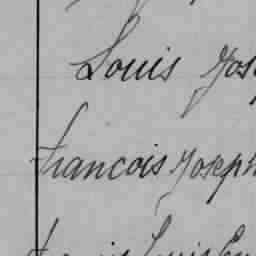 Louis Jos
François Joseph
Louis